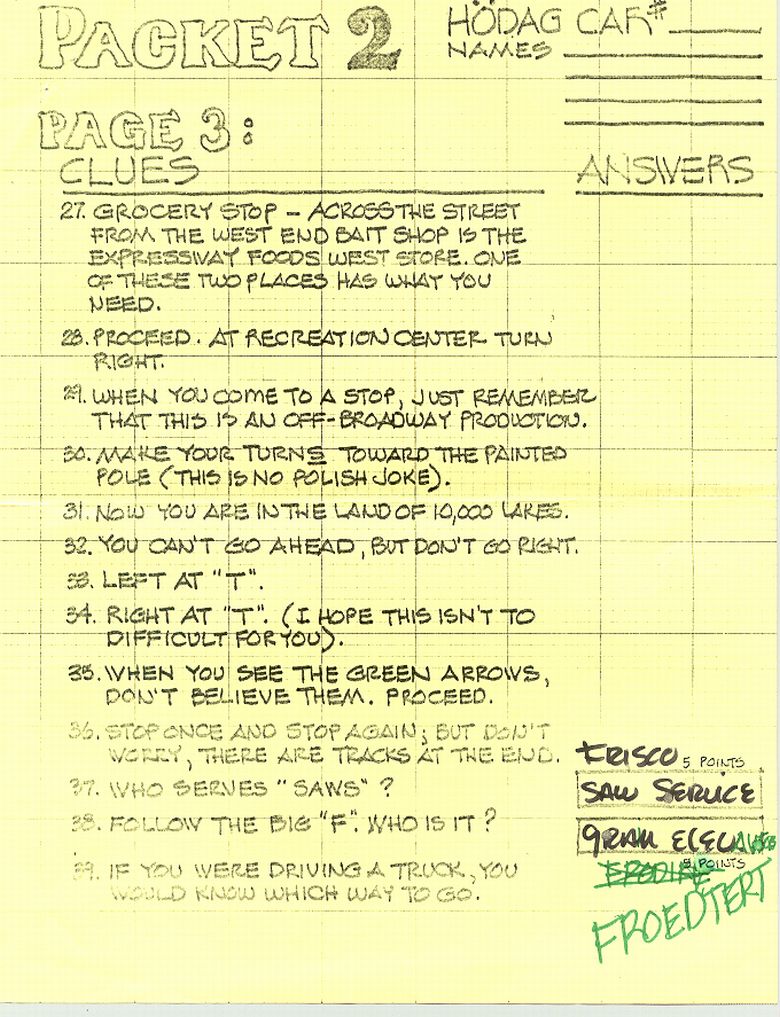 PACKET 2
HÖDAG CAR #
NAMES
PAGE 3:
CLUES
ANSWERS
27. GROCERY STOP - ACROSS THE STREET
FROM THE WEST END BAIT SHOP IS THE
EXPRESSWAY FOODS WEST STORE. ONE
OF THESE TWO PLACES HAS WHAT YOU
NEED.
28. PROCEED. AT RECREATION CENTER TURN
RIGHT.
29. WHEN YOU COME TO A STOP, JUST REMEMBER
THAT THIS IS AN OFF-BROADWAY PRODUCTION.
30. MAKE YOUR TURNS TOWARD THE PAINTED
POLE (THIS IS NO POLISH JOKE).
31. NOW YOU ARE IN THE LAND OF 10,000 LAKES.
32. YOU CAN'T GO AHEAD, BUT DON'T GO RIGHT.
33. LEFT AT "T".
34. RIGHT AT "T". (I HOPE THIS ISN'T TO
DIFFICULT FOR YOU).
35. WHEN YOU SEE THE GREEN ARROWS,
DON'T BELIEVE THEM. PROCEED.
36. STOP ONCE AND STOP AGAIN; BUT DON'T
WORRY, THERE ARE TRACKS AT THE END.
37. WHO SERVES "SAWS"?
FRISCO 5 POINTS
SAW SERVICE
38. FOLLOW THE BIG "F". WHO IS IT?
5 POINTS
FROEDTERT
39. IF YOU WERE DRIVING A TRUCK, YOU
WOULD KNOW WHICH WAY TO GO.